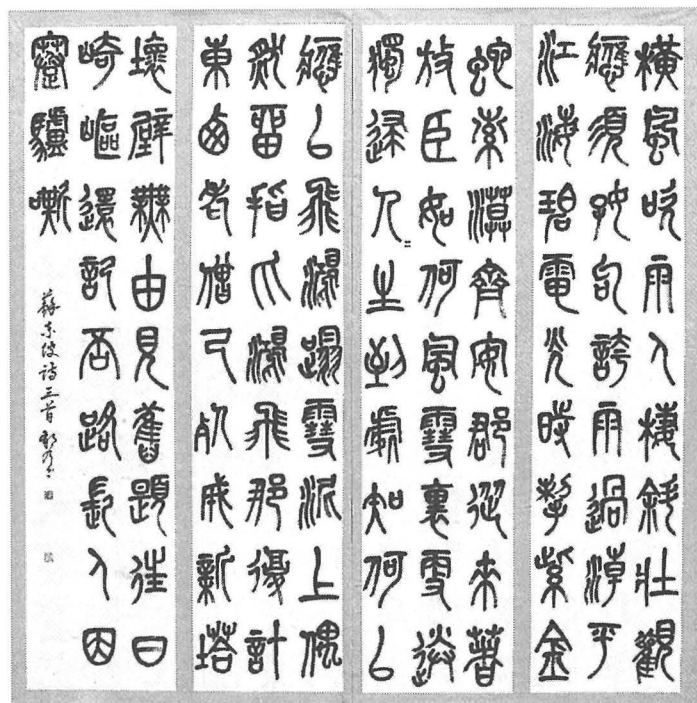 橫風吹雨入樓斜壯觀
應須好句誇雨過潮平
江海碧電光時掣紫金
蛇索漠齊安郡從來著
放臣如何風雪裏更送
獨歸人〻生到處知何以
應以飛鴻踏雪泥上偶
然留指爪鴻飛那復計
東西老僧已死成新塔
壞壁無由見舊題往日
崎嶇還記否路長人困
蹇驢嘶
蘇東坡詩三首